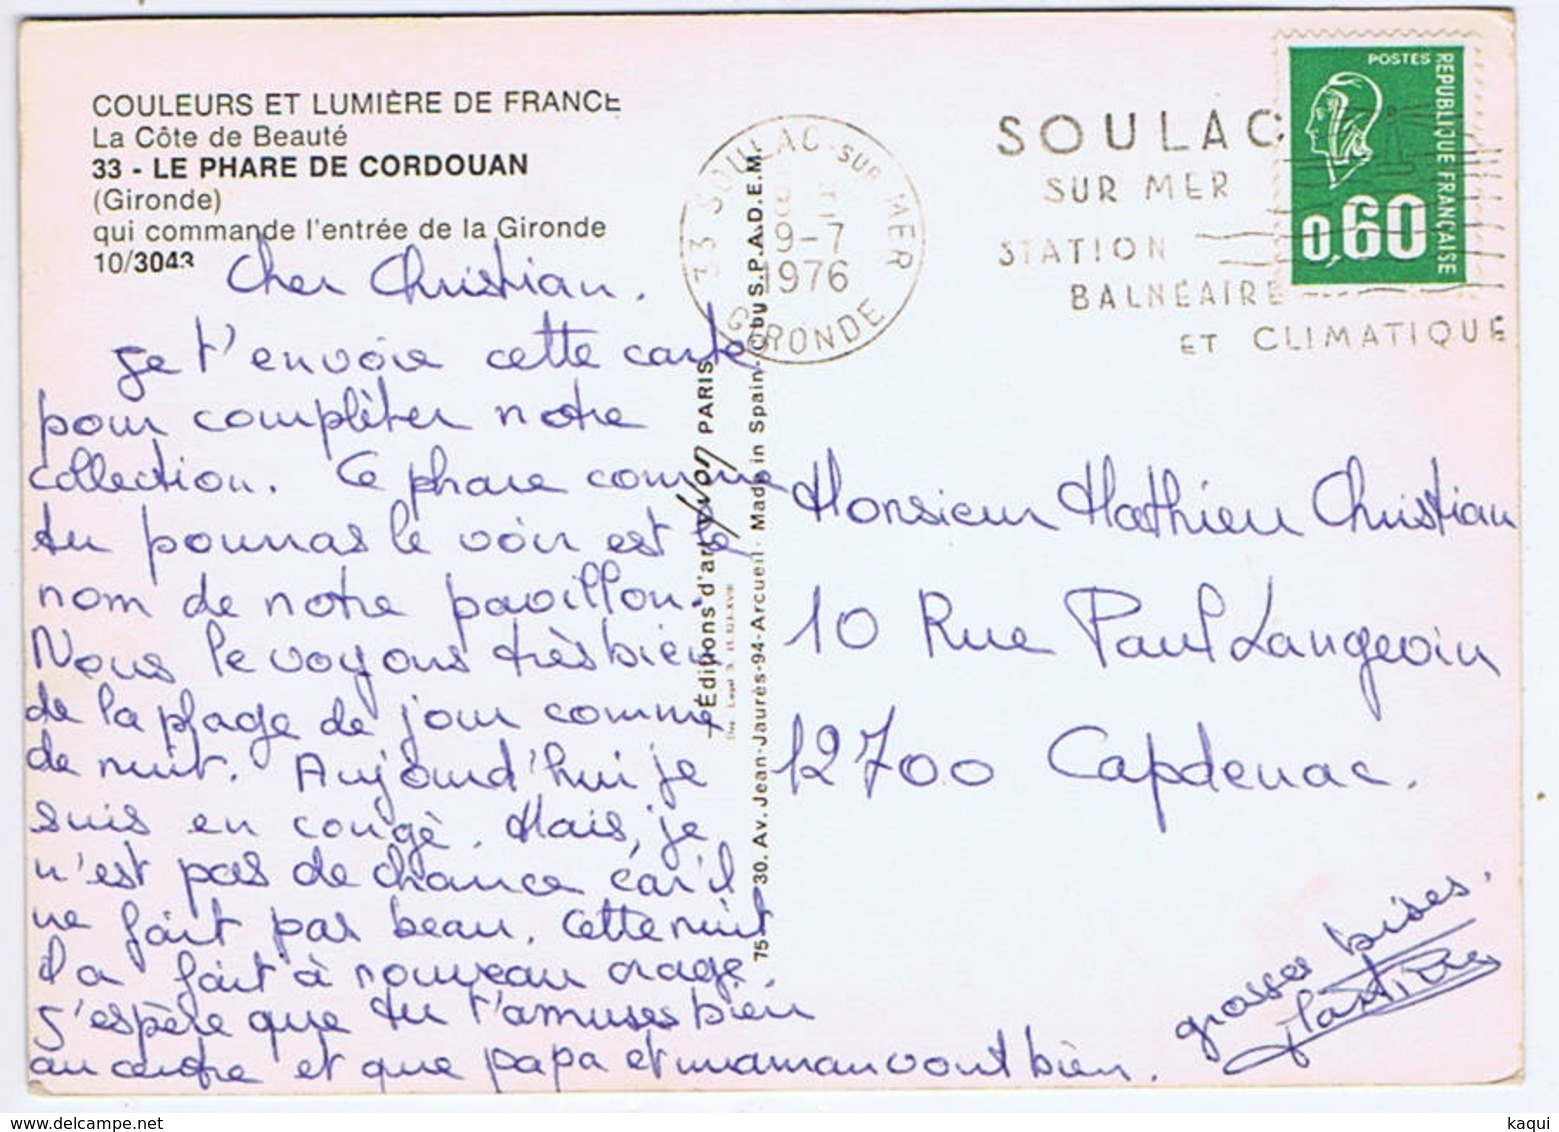 COULEURS ET LUMIÈRE DE FRANCE
La Côte de Beauté
33 - LE PHARE DE CORDOUAN
(Gironde)
qui commande l'entrée de la Gironde
10/3043
Cher Christian.
Je t'envoie cette carte
pour complèter notre
collection. Ce phare comme
tu pourras le voir est le
nom de notre pavillon.
Nous le voyons très bien
de la plage de jour comme
de nuit. Aujourd'hui je
suis en congè. Mais, je
n'est pas de chance car il
ne fait pas beau. Cette nuit
il a fait à nouveau orage.
J'espère que tu t'amuses bien
au centre et que papa et maman vont bien.
33 SOULAC-SUR-MER
9-7
1976
GIRONDE
Editions d'art Yvon PARIS
75 - 30. Av. Jean-Jaurès-94-Arcueil - Made in Spain - © by S.P.A.D.E.M.
SOULAC
SUR MER
STATION
BALNÉAIRE
ET CLIMATIQUE
POSTES
REPUBLIQUE FRANÇAISE
0,60
Monsieur Mathieu Christian
10 Rue Paul Langevin
12700 Capdenac.
grosses bises.
Martine
kaqui